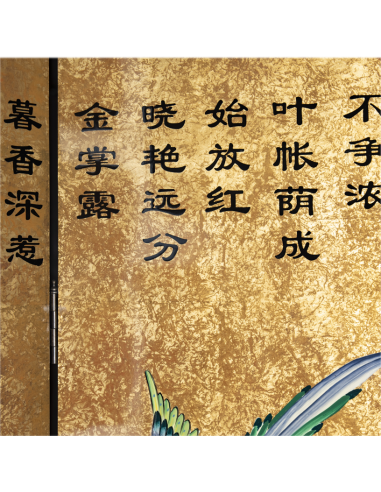 不争浓
叶帐荫成
始放红
晓艳远分
金掌露
暮香深惹